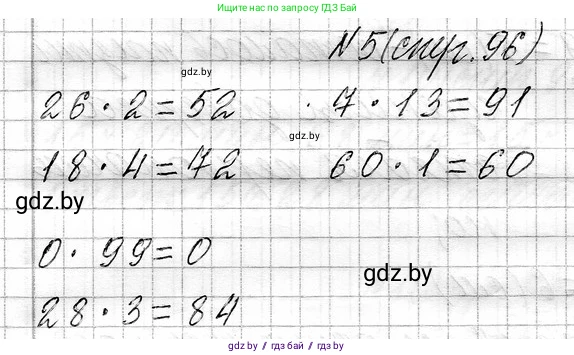 Напиши ответ по запросу ГДЗ.БАЙ в поиске
№ 5 (стр. 96)
gdz.by
26 · 2 = 52 · 7 · 13 = 91
gdz.by
18 · 4 = 72 60 · 1 = 60
gdz.by
0 · 99 = 0
gdz.by
28 · 3 = 84
gdz.by / гдз бай / gdz.by